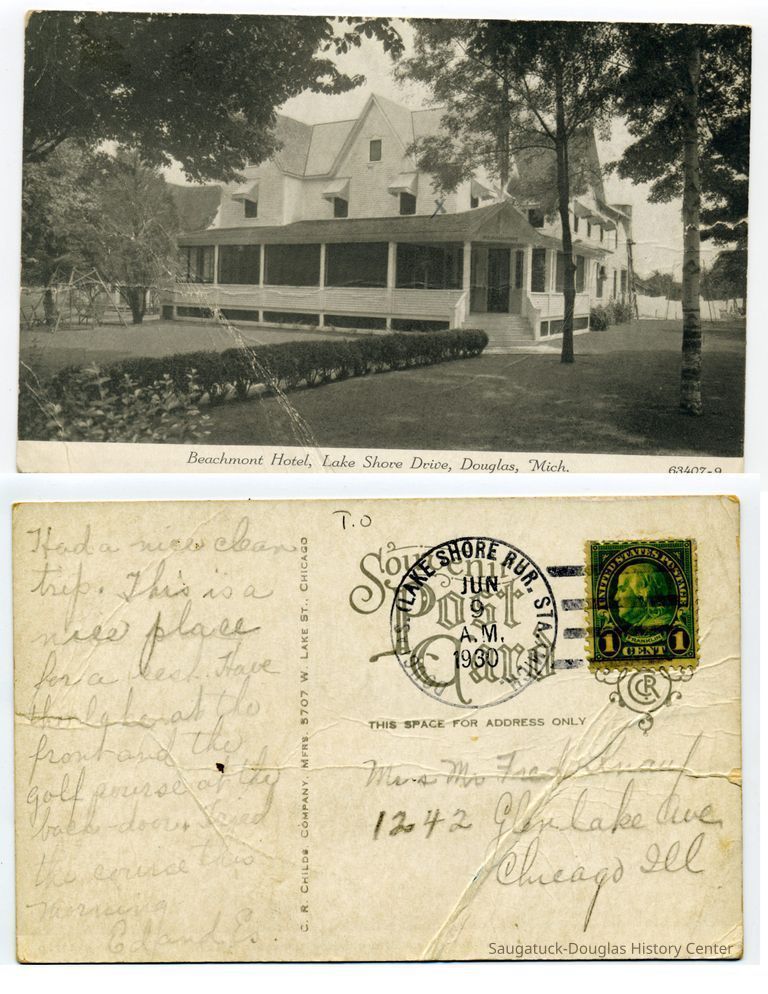 Beachmont Hotel, Lake Shore Drive, Douglas, Mich.
63407-9
T.O
Had a nice clean
trip. This is a
nice place
for a rest. Have
the lake at the
front and the
golf course at the
back door.
the course this
morning
Ed and Es.
C. R. CHILDS, COMPANY, MFRS. 5707 W. LAKE ST., CHICAGO
Souvenir
Post
Card
DOUGLAS. (LAKE SHORE RUR. STA.) MICH
JUN
9
A.M.
1930
UNITED STATES POSTAGE
FRANKLIN
1 CENT 1
CRC
THIS SPACE FOR ADDRESS ONLY
Mrs Mr Fred
1242 Glenlake Ave
Chicago Ill
Saugatuck-Douglas History Center